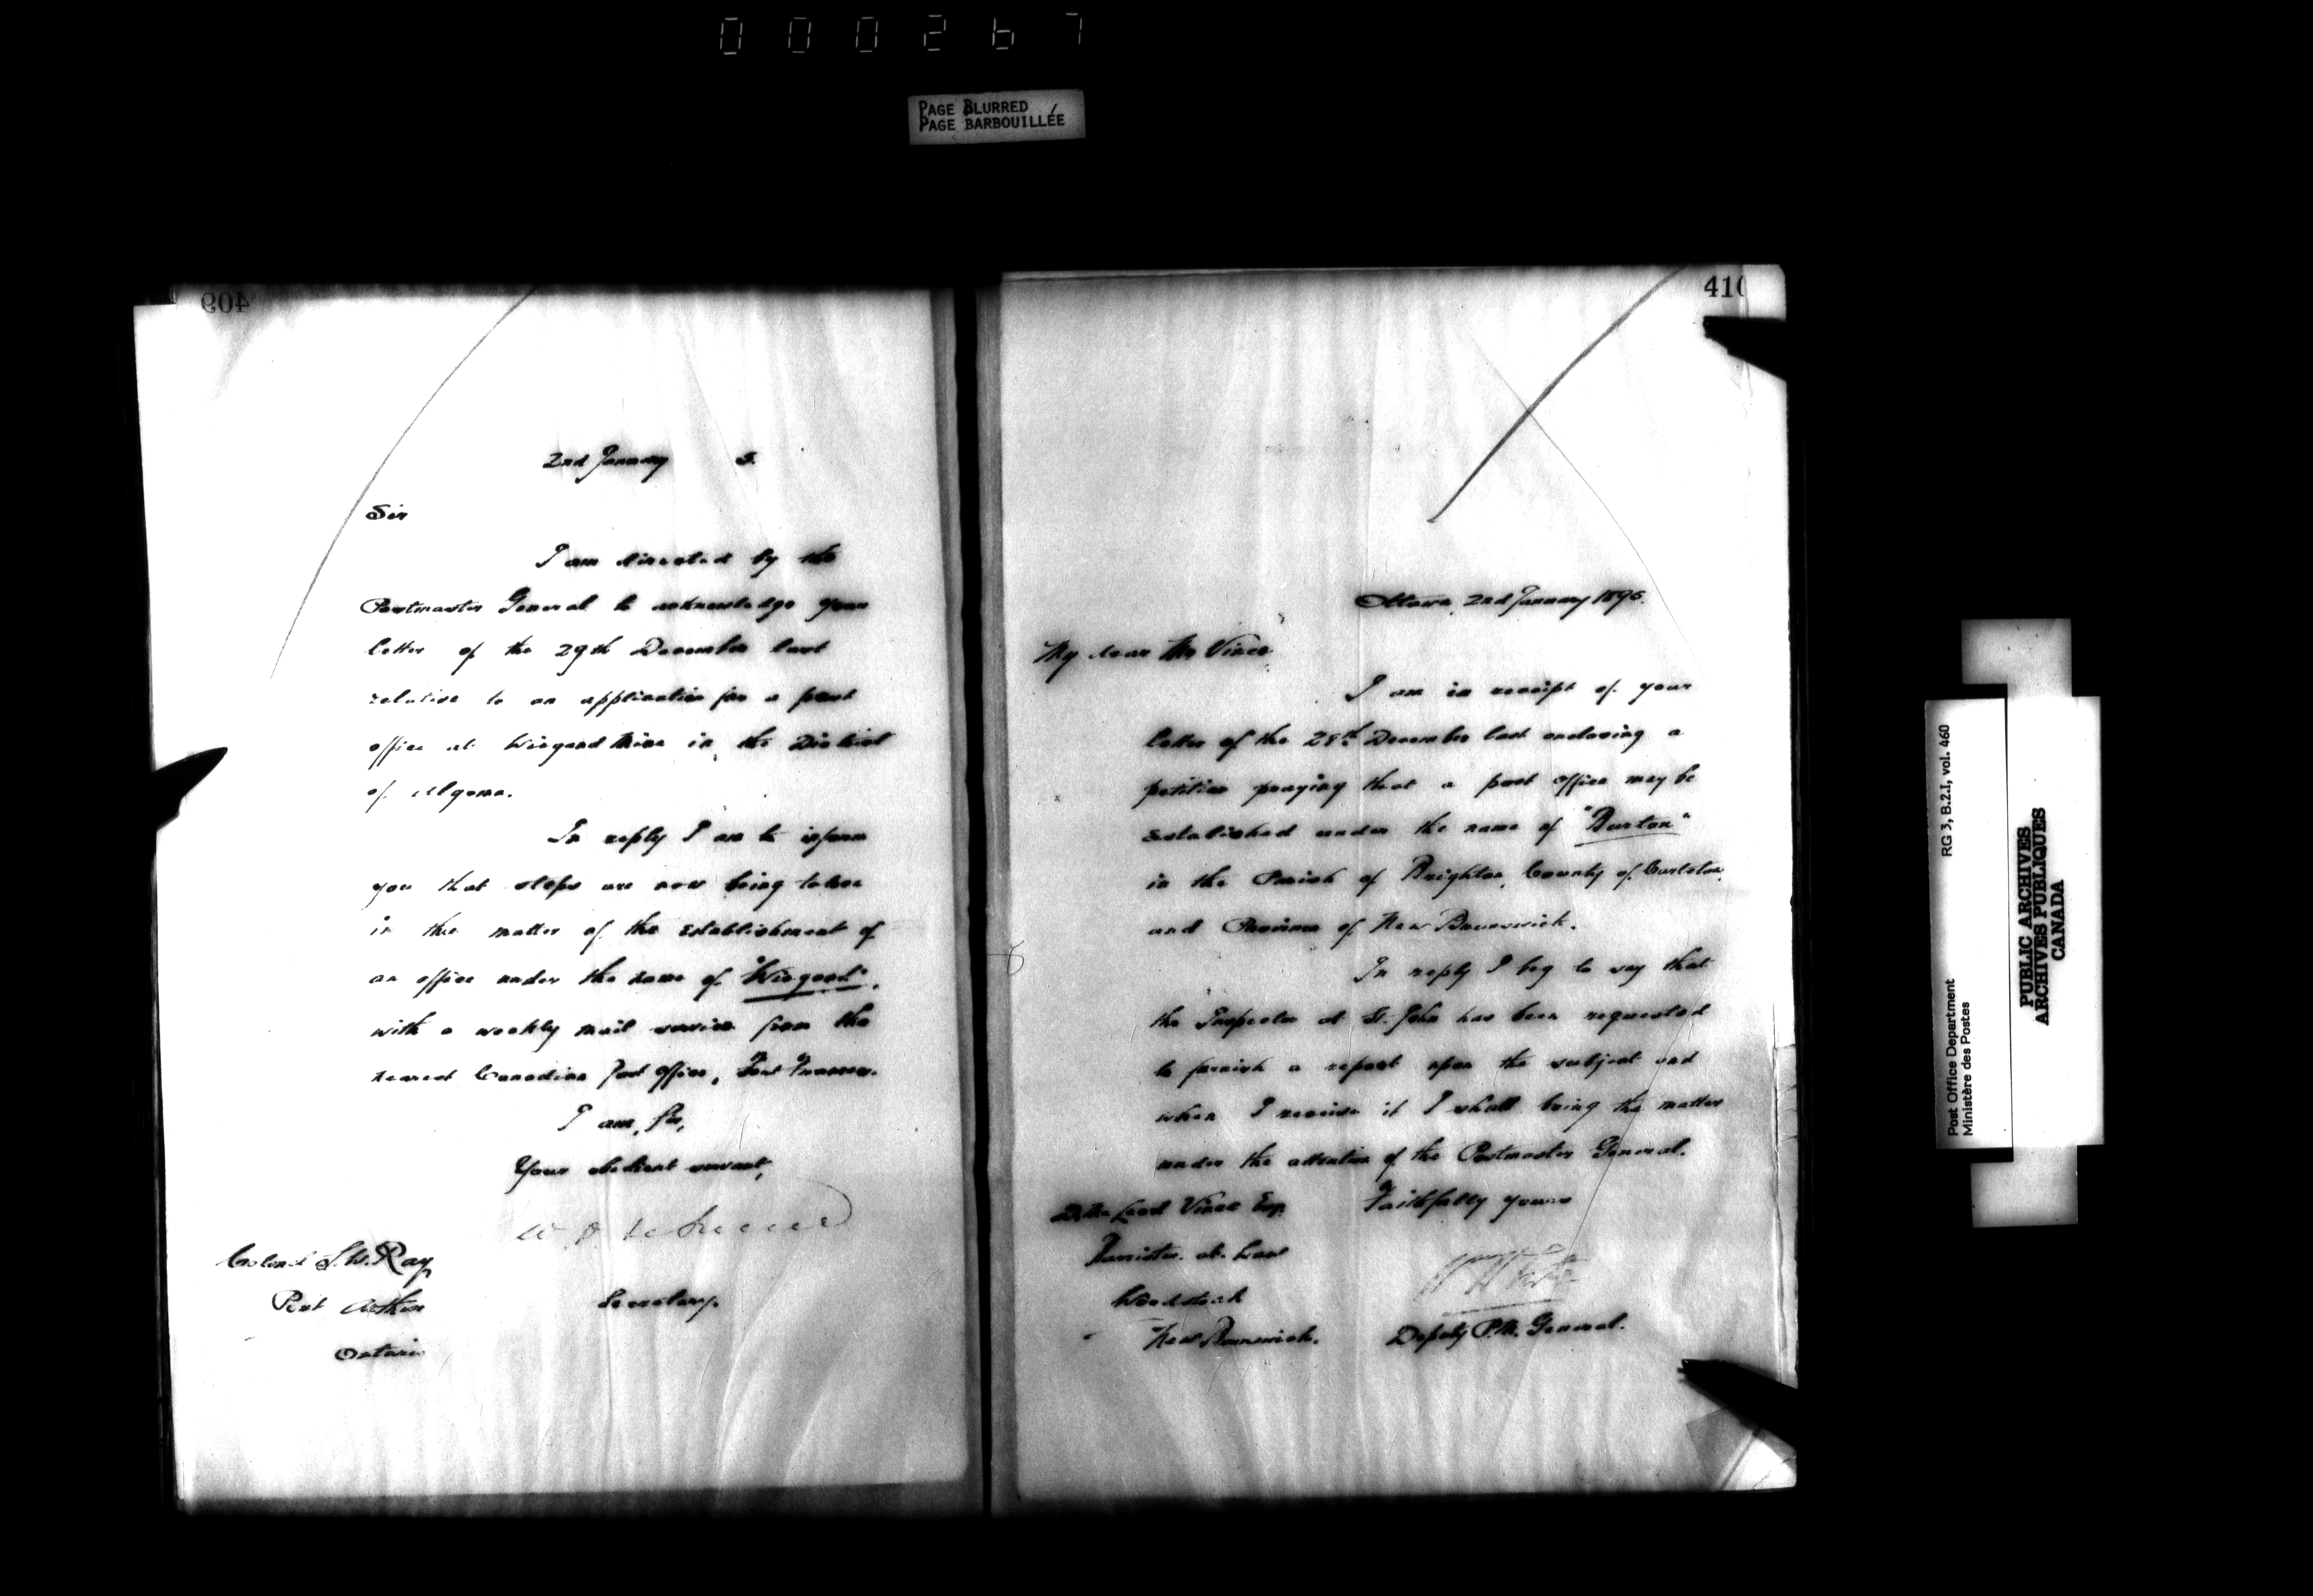 000267
PAGE BLURRED
PAGE BARBOUILLÉE
409
2nd January 5.
Sir
I am directed by the
Postmaster General to acknowledge your
letter of the 29th December last
relative to an application for a post
office at Wiegand Mine in the District
of Algoma.
In reply I am to inform
you that steps are now being taken
in the matter of the establishment of
an office under the name of "Wiegand",
with a weekly mail service from the
nearest Canadian Post Office, Fort Frances.
I am, Sir,
Your obedient servant,
Secretary.
Colonel S.W. Ray
Port Arthur
Ontario
410
Ottawa, 2nd January 1895.
My dear Mr Vince
I am in receipt of your
letter of the 28th December last enclosing a
petition praying that a post office may be
established under the name of "Burton"
in the Parish of Brighton, County of Carleton,
and Province of New Brunswick.
In reply I beg to say that
the Inspector at St. John has been requested
to furnish a report upon the subject and
when I receive it I shall bring the matter
under the attention of the Postmaster General.
Faithfully yours
D. McLeod Vince Esq.
Barrister at Law
Woodstock
New Brunswick.
W White
Deputy P.M. General.
Post Office Department
Ministère des Postes
RG 3, B.2.I, vol. 460
PUBLIC ARCHIVES
ARCHIVES PUBLIQUES
CANADA